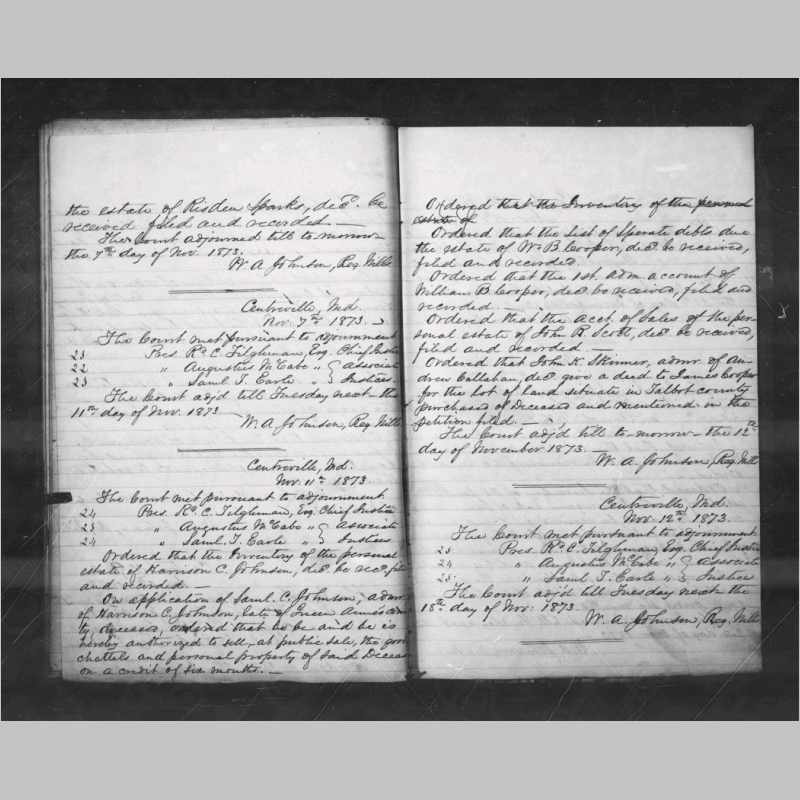 the estate of Risden Sparks, dec'd. be
received filed and recorded. —
The Court adjourned till to-morrow—
the 7th day of Nov. 1873.
W. A. Johnson, Reg. Wills
Centreville, Md.
Nov. 7th 1873.
The Court met pursuant to adjournment
23 Pres. Rd. C. Tilghman, Esq. Chief Justice
22 " Augustus McCabe " } Associate
23 " Saml. T. Earle " } Justices
The Court adj'd till Tuesday next the
11th day of Nov. 1873 —
W. A. Johnson, Reg Wills
Centreville, Md.
Nov. 11th 1873
The Court met pursuant to adjournment
24 Pres. Rd. C. Tilghman, Esq Chief Justice
23 " Augustus McCabe " } Associate
24 " Saml. T. Earle " } Justices
Ordered that the Inventory of the personal
estate of Harrison C. Johnson, dec'd be rec'd, fil
and recorded. —
On application of Saml. C. Johnson, admr
of Harrison C. Johnson, late of Queen Anne's
ty, deceased, ordered that he be and he is
hereby authorized to sell, at public sale, the goo
chattels and personal property of said Deceas
on a credit of six months. —
Ordered that the Inventory of the personal
estate of
Ordered that the List of Sperate debts due
the estate of Wm B Cooper, dec'd be received,
filed and recorded.
Ordered that the 1st. adm account of
William B Cooper, dec'd be received, filed and
recorded. —
Ordered that the acct. of Sales of the per-
sonal estate of John R Scott, dec'd be received,
filed and recorded —
Ordered that John K. Skinner, admr. of An-
drew Callahan, dec'd give a deed to James Cooper
for the Lot of land situate in Talbot county
purchased of Deceased and mentioned in the
petition filed. —
The Court adj'd till to-morrow — the 12th
day of November 1873. —
W. A. Johnson, Reg. Wills
Centreville, Md.
Nov. 12th 1873.
The Court met pursuant to adjournment
25 Pres. Rd. C. Tilghman, Esq. Chief Justice
24 " Augustus McCabe " } Associate
25 " Saml T. Earle " } Justices
The Court adj'd till Tuesday next the
18th day of Nov. 1873
W. A. Johnson, Reg. Wills